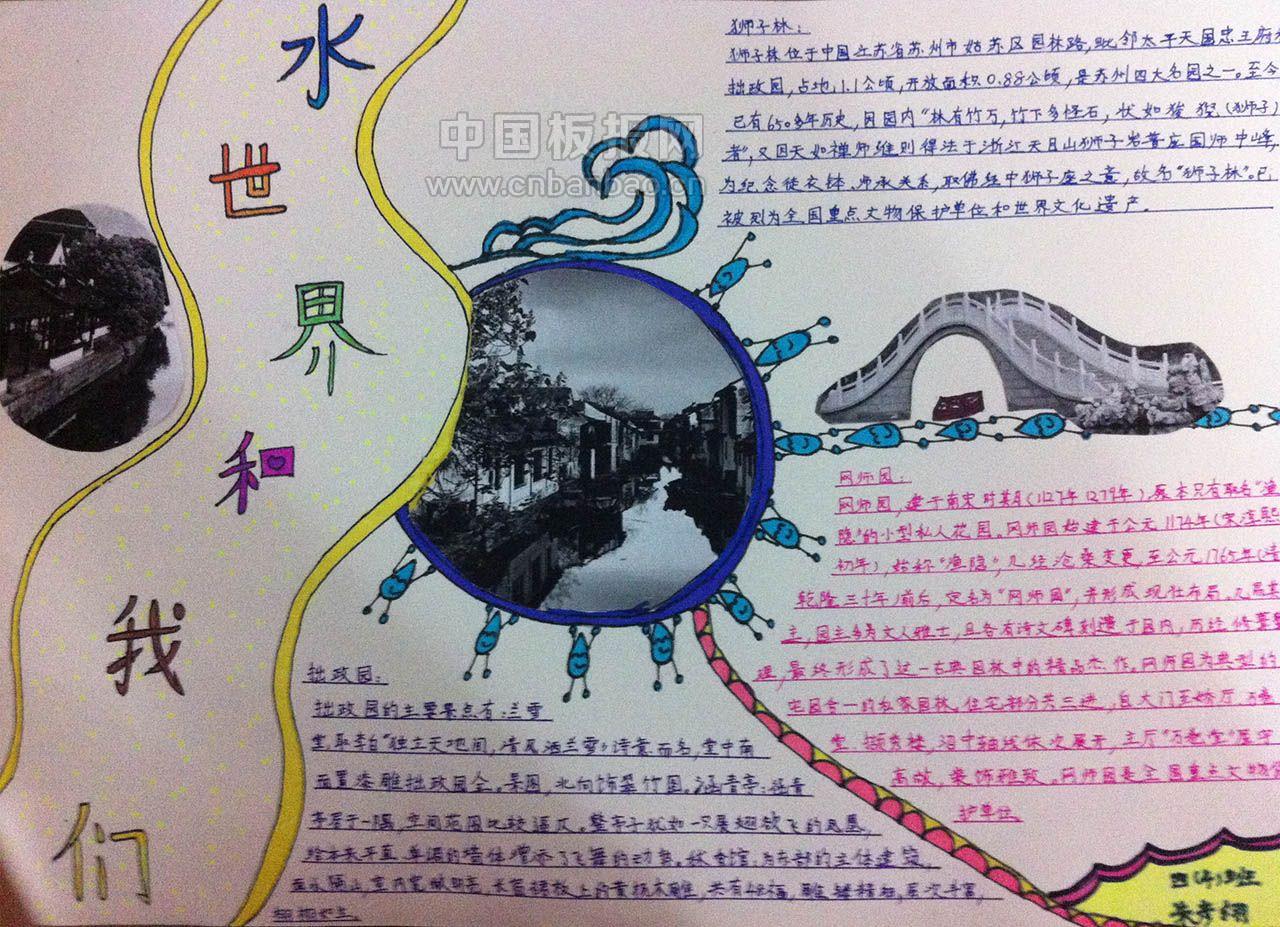 水
世
界
和
我
们
中国板报网
www.cnbanbao.cn
狮子林：
狮子林位于中国江苏省苏州市姑苏区园林路，毗邻太平天国忠王府
拙政园，占地1.1公顷，开放面积0.88公顷，是苏州四大名园之一。至今
已有650多年历史，因园内“林有竹万，竹下多怪石，状如狻猊(狮子)
者”，又因天如禅师维则得法于浙江天目山狮子岩普应国师中峰，
为纪念徒衣钵、师承关系，取佛经中狮子座之意，故名“狮子林”。已
被列为全国重点文物保护单位和世界文化遗产.
网师园：
网师园，建于南宋时其月(1127年1279年)，原本只有取名“渔
隐”的小型私人花园。网师园始建于公元1174年(宋淳熙
初年)，始称“渔隐”，几经沧桑变更，至公元1765年(清
乾隆三十年)前后，定名为“网师园”，并形成现状布局。几易其
主，园主多为文人雅士，且各有诗文碑刻遗于园内，历经修葺整
理，最终形成了这一古典园林中的精品杰作。网师园为典型的
宅园合一的私家园林。住宅部分共三进，自大门至轿厅、万卷
堂、撷秀楼，沿中轴线依次展开，主厅“万卷堂”屋宇
高敞，装饰雅致。网师园是全国重点文物保
护单位。
拙政园：
拙政园的主要景点有：兰雪
堂，取李白“独立天地间，清风洒兰雪”诗意而名，堂中南
面置漆雕拙政园全。景图，北向饰翠竹图。涵青亭：涵青
亭居于一隅，空间范围比较逼仄。整亭子犹如一只展翅欲飞的凤凰，
给本来平直、单调的墙体增添了飞舞的动势。秫香馆，为东部的主体建筑，
面水隔山，室内宽敞明亮，长窗裙板上的黄杨木雕，共有48幅，雕镂精细，层次丰富，
栩栩如生。
四(4)班